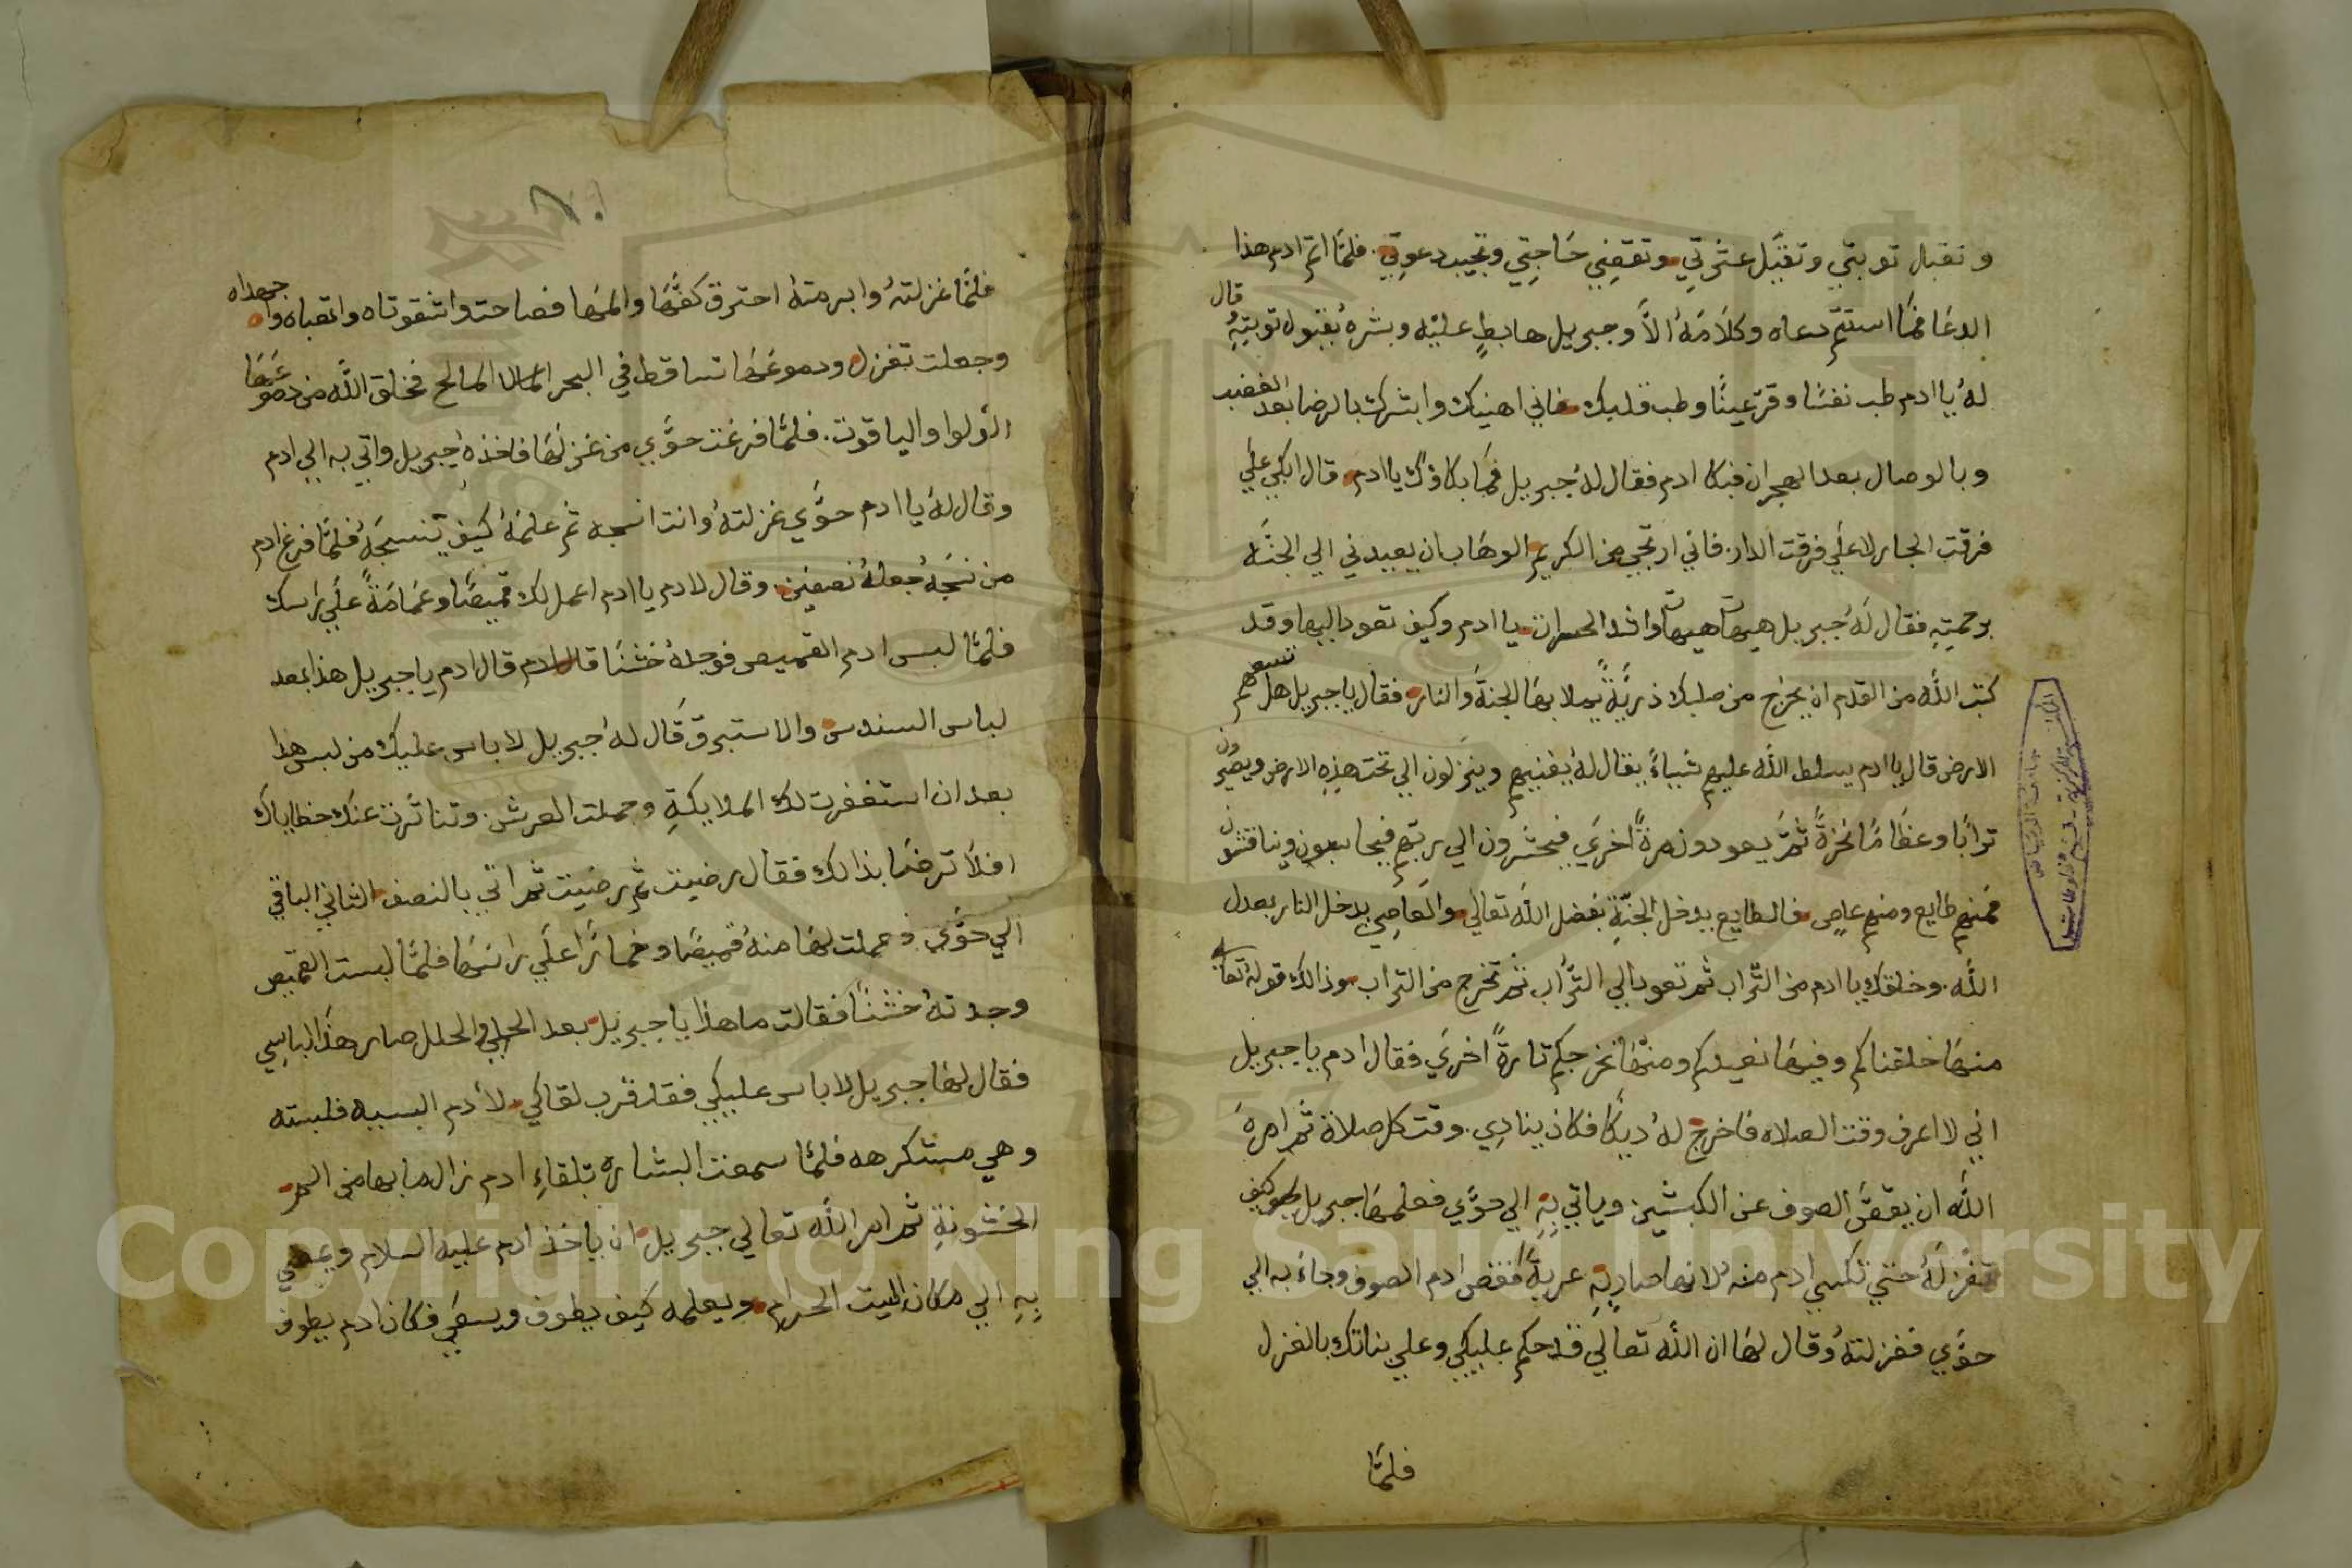 و تقبل توبتي وتقبل عثرتي وتقضي حاجتي وتجيب دعوتي. فلما اتم ادم هذا
الدعا فما استتم دعاه وكلامه الا وجبريل هابط عليه وبشره بقبول توبته قال
له يا ادم طب نفسا وقر عينا وطب قلبك فاني اهنيك وابشرك بالرضا بعد الغضب
وبالوصال بعد الهجران فبكا ادم فقال له جبريل فما بكاؤك يا ادم قال ابكي علي
فرقت الجار لا علي فرقت الدار. فاني ارتجي من الكريم الوهاب ان يعيدني الي الجنه
برحمته فقال له جبريل هيهات هيهات واشد الحسرات يا ادم وكيف تعود اليها وقد
كتب الله من القدم ان يخرج من صلبك ذرية يملا بها الجنة والنار فقال يا جبريل هل تسعهم
الارض قال يا ادم يسلط الله عليهم شياء يقال له يفنيهم وينزلون الي تحت هذه الارض ويصيرون
ترابا وعظاما نخرة ثم يعودون مرة اخري فيحشرون الي ربهم فيحاسبون ويناقشون
فمنهم طايع ومنهم عاصي فالطايع يدخل الجنة بفضل الله تعالي والعاصي يدخل النار بعدل
الله. وخلقك يا ادم من التراب ثم تعود الي التراب ثم تخرج من التراب وذالك قوله تعالي
منها خلقناكم وفيها نعيدكم ومنها نخرجكم تارة اخري فقال ادم يا جبريل
اني لا اعرف وقت الصلاه فاخرج له ديكا فكان ينادي. وقت كل صلاة ثم امره
الله ان يقص الصوف عن الكبشين وياتي به الي حوي فعلمها جبريل كيف
تغزله حتي تكسي ادم منه لانها صاربه عرية فقص ادم الصوف وجاء به الي
حوي فغزلته وقال لها ان الله تعالي قد حكم عليكي وعلي بناتك بالغزل
فلما
فلما غزلته وابرمته احترق كفها والمها فصاحت واشقوتاه واتعباه واجهداه
وجعلت تغزل ودموعها تساقط في البحر المالح فخلق الله من دموعها
الؤلوا والياقوت. فلما فرغت حوي من غزلها فاخذه جبريل واتي به الي ادم
وقال له يا ادم حوي غزلته وانت انسجه ثم علمه كيف تنسجه فلما فرغ ادم
من نسجه جعله نصفين. وقال لادم يا ادم اعمل لك قميصا وعمامة علي راسك
فلما لبس ادم القميص فوجده خشنا قال ادم يا جبريل هذا بعد
لباس السندس والاستبرق قال له جبريل لا باس عليك من لبس هذا
بعد ان استغفرت لك الملايكة وحملت العرش. وتناثرت عنك خطاياك
افلا ترضا بذالك فقال رضيت ثم رضيت ثم اتي بالنصف الثاني الباقي
الي حوي. فعملت لها منه قميصا وخمائرا علي راسها فلما لبست القميص
وجدته خشنا فقالت ما هذا يا جبريل بعد الحلي والحلل صار هذا لباسي
فقال لها جبريل لا باس عليكي فقد قرب لقاكي لادم البسيه فلبسته
وهي مستكرهه فلما سمعت البشاره بتلقاء ادم زال ما بها من
الخشونة ثم امر الله تعالي جبريل ان ياخذ ادم عليه السلام ويمضي
به الي مكان البيت الحرام ويعلمه كيف يطوف ويسعي فكان ادم يطوف
Copyright © King Saud University
1957